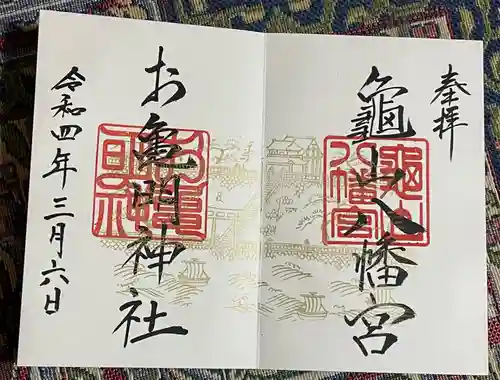 奉拝
龜山八幡宮
お亀明神社
令和四年三月六日
龜山八幡宮